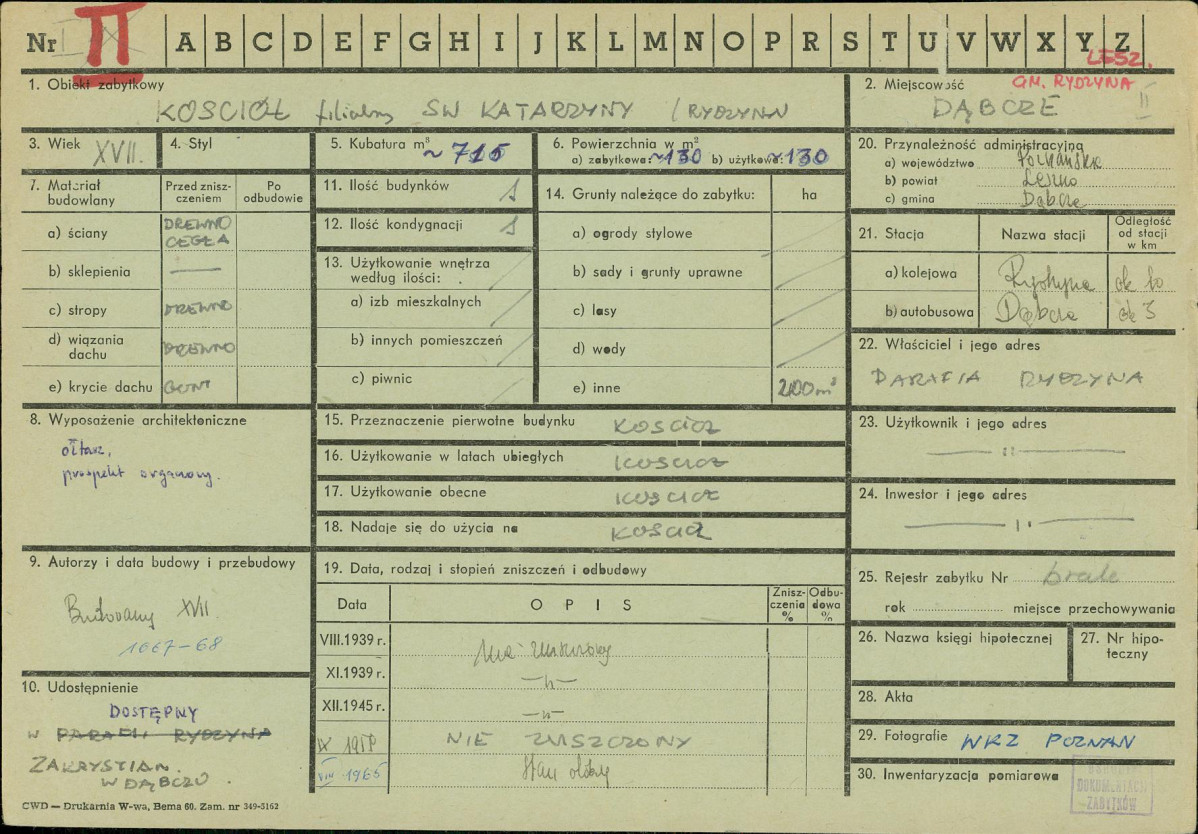 Nr II A B C D E F G H I J K L M N O P R S T U V W X Y Z
LESZ.
1. Obiekt zabytkowy
KOŚCIÓŁ filialny ŚW KATARZYNY /RYDZYNA
2. Miejscowość GM. RYDZYNA
DĄBCZE II
3. Wiek XVII.
4. Styl
5. Kubatura m³ ~ 715
6. Powierzchnia w m²
a) zabytkowa: ~130 b) użytkowa: ~130
20. Przynależność administracyjna
a) województwo Poznańskie
b) powiat Leszno
c) gmina Dąbcze
7. Materiał budowlany
Przed zniszczeniem
Po odbudowie
a) ściany DREWNO CEGŁA
b) sklepienia —
c) stropy DREWNO
d) wiązania dachu DREWNO
e) krycie dachu GONT
11. Ilość budynków 1
12. Ilość kondygnacji 1
13. Użytkowanie wnętrza według ilości:
a) izb mieszkalnych
b) innych pomieszczeń
c) piwnic
14. Grunty należące do zabytku: ha
a) ogrody stylowe
b) sady i grunty uprawne
c) lasy
d) wody
e) inne 2100 m²
21. Stacja
Nazwa stacji
Odległość od stacji w km
a) kolejowa Rydzyna ok 10
b) autobusowa Dąbcze ok 3
22. Właściciel i jego adres
PARAFIA RYDZYNA
8. Wyposażenie architektoniczne
ołtarz,
prospekt organowy.
15. Przeznaczenie pierwotne budynku KOŚCIÓŁ
16. Użytkowanie w latach ubiegłych KOŚCIÓŁ
17. Użytkowanie obecne KOŚCIÓŁ
18. Nadaje się do użycia na KOŚCIÓŁ
23. Użytkownik i jego adres
— " —
24. Inwestor i jego adres
— " —
9. Autorzy i data budowy i przebudowy
Budowany XVII
1667-68
19. Data, rodzaj i stopień zniszczeń i odbudowy
Data
OPIS
Zniszczenia %
Odbudowa %
VIII.1939 r.
XI.1939 r. —"—
XII.1945 r. —"—
IX 1958 NIE ZNISZCZONY
VIII 1965 Stan dobry
25. Rejestr zabytku Nr brak
rok miejsce przechowywania
26. Nazwa księgi hipotecznej
27. Nr hipoteczny
28. Akta
29. Fotografie WKZ POZNAŃ
30. Inwentaryzacja pomiarowa
10. Udostępnienie
DOSTĘPNY
W PARAFII RYDZYNA
ZAKRYSTIAN.
W DĄBCZU.
OŚRODEK
DOKUMENTACJI
ZABYTKÓW
CWD — Drukarnia W-wa, Bema 60. Zam. nr 349-5162